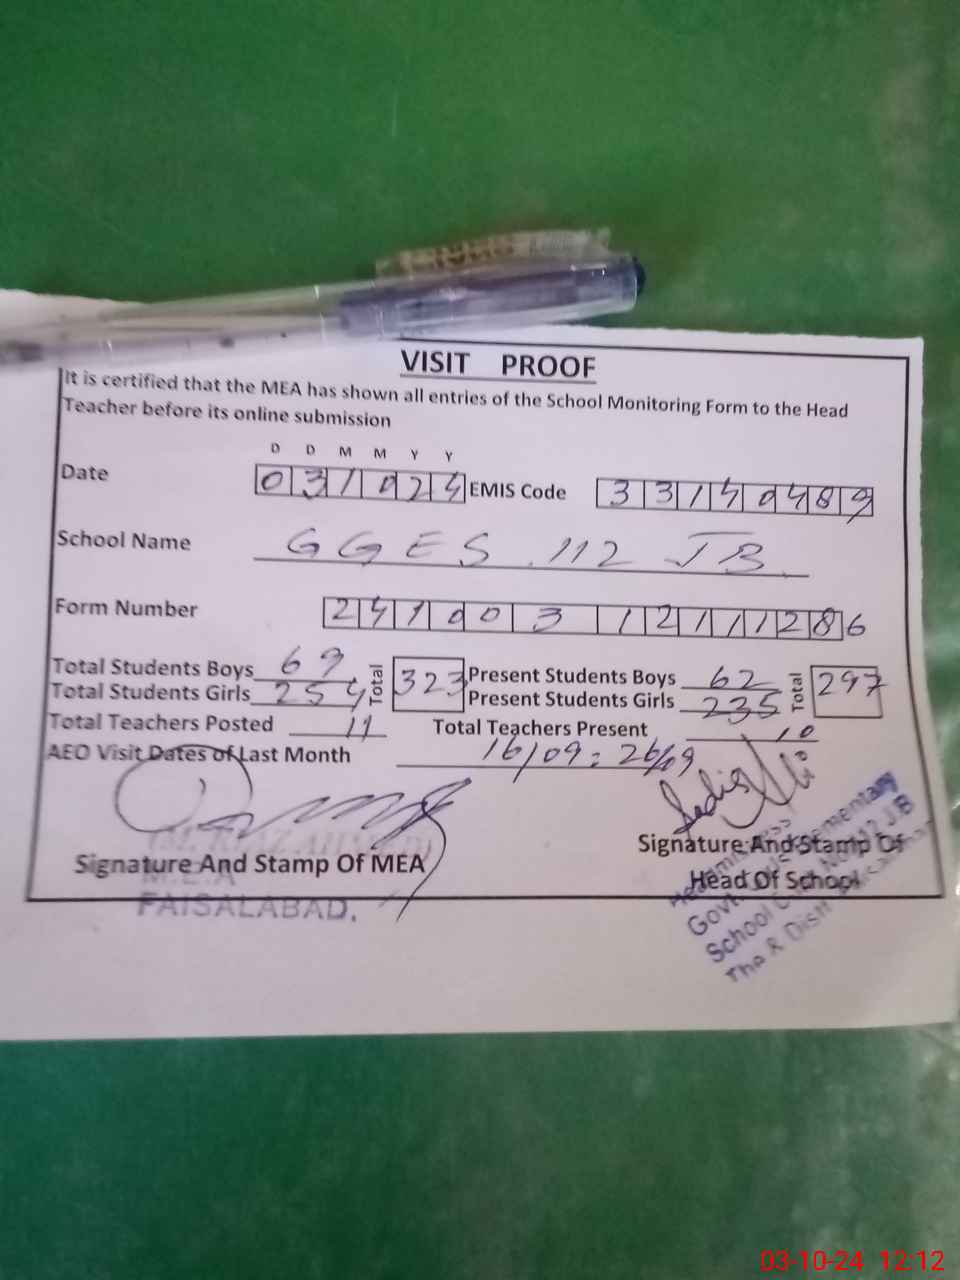 VISIT PROOF
It is certified that the MEA has shown all entries of the School Monitoring Form to the Head
Teacher before its online submission
D D M M Y Y
Date 031024 EMIS Code 33140489
School Name GGES 112 JB
Form Number 241003121111286
Total Students Boys 69 Total 323 Present Students Boys 62 Total 297
Total Students Girls 254 Present Students Girls 235
Total Teachers Posted 11 Total Teachers Present 10
AEO Visit Dates of Last Month 16/09: 26/09
Signature And Stamp Of MEA
M.E.A
FAISALABAD.
Signature And Stamp Of
Head Of School
Headmistress
Govt. Elementary
School 112 J.B
Distt
03-10-24 12:12